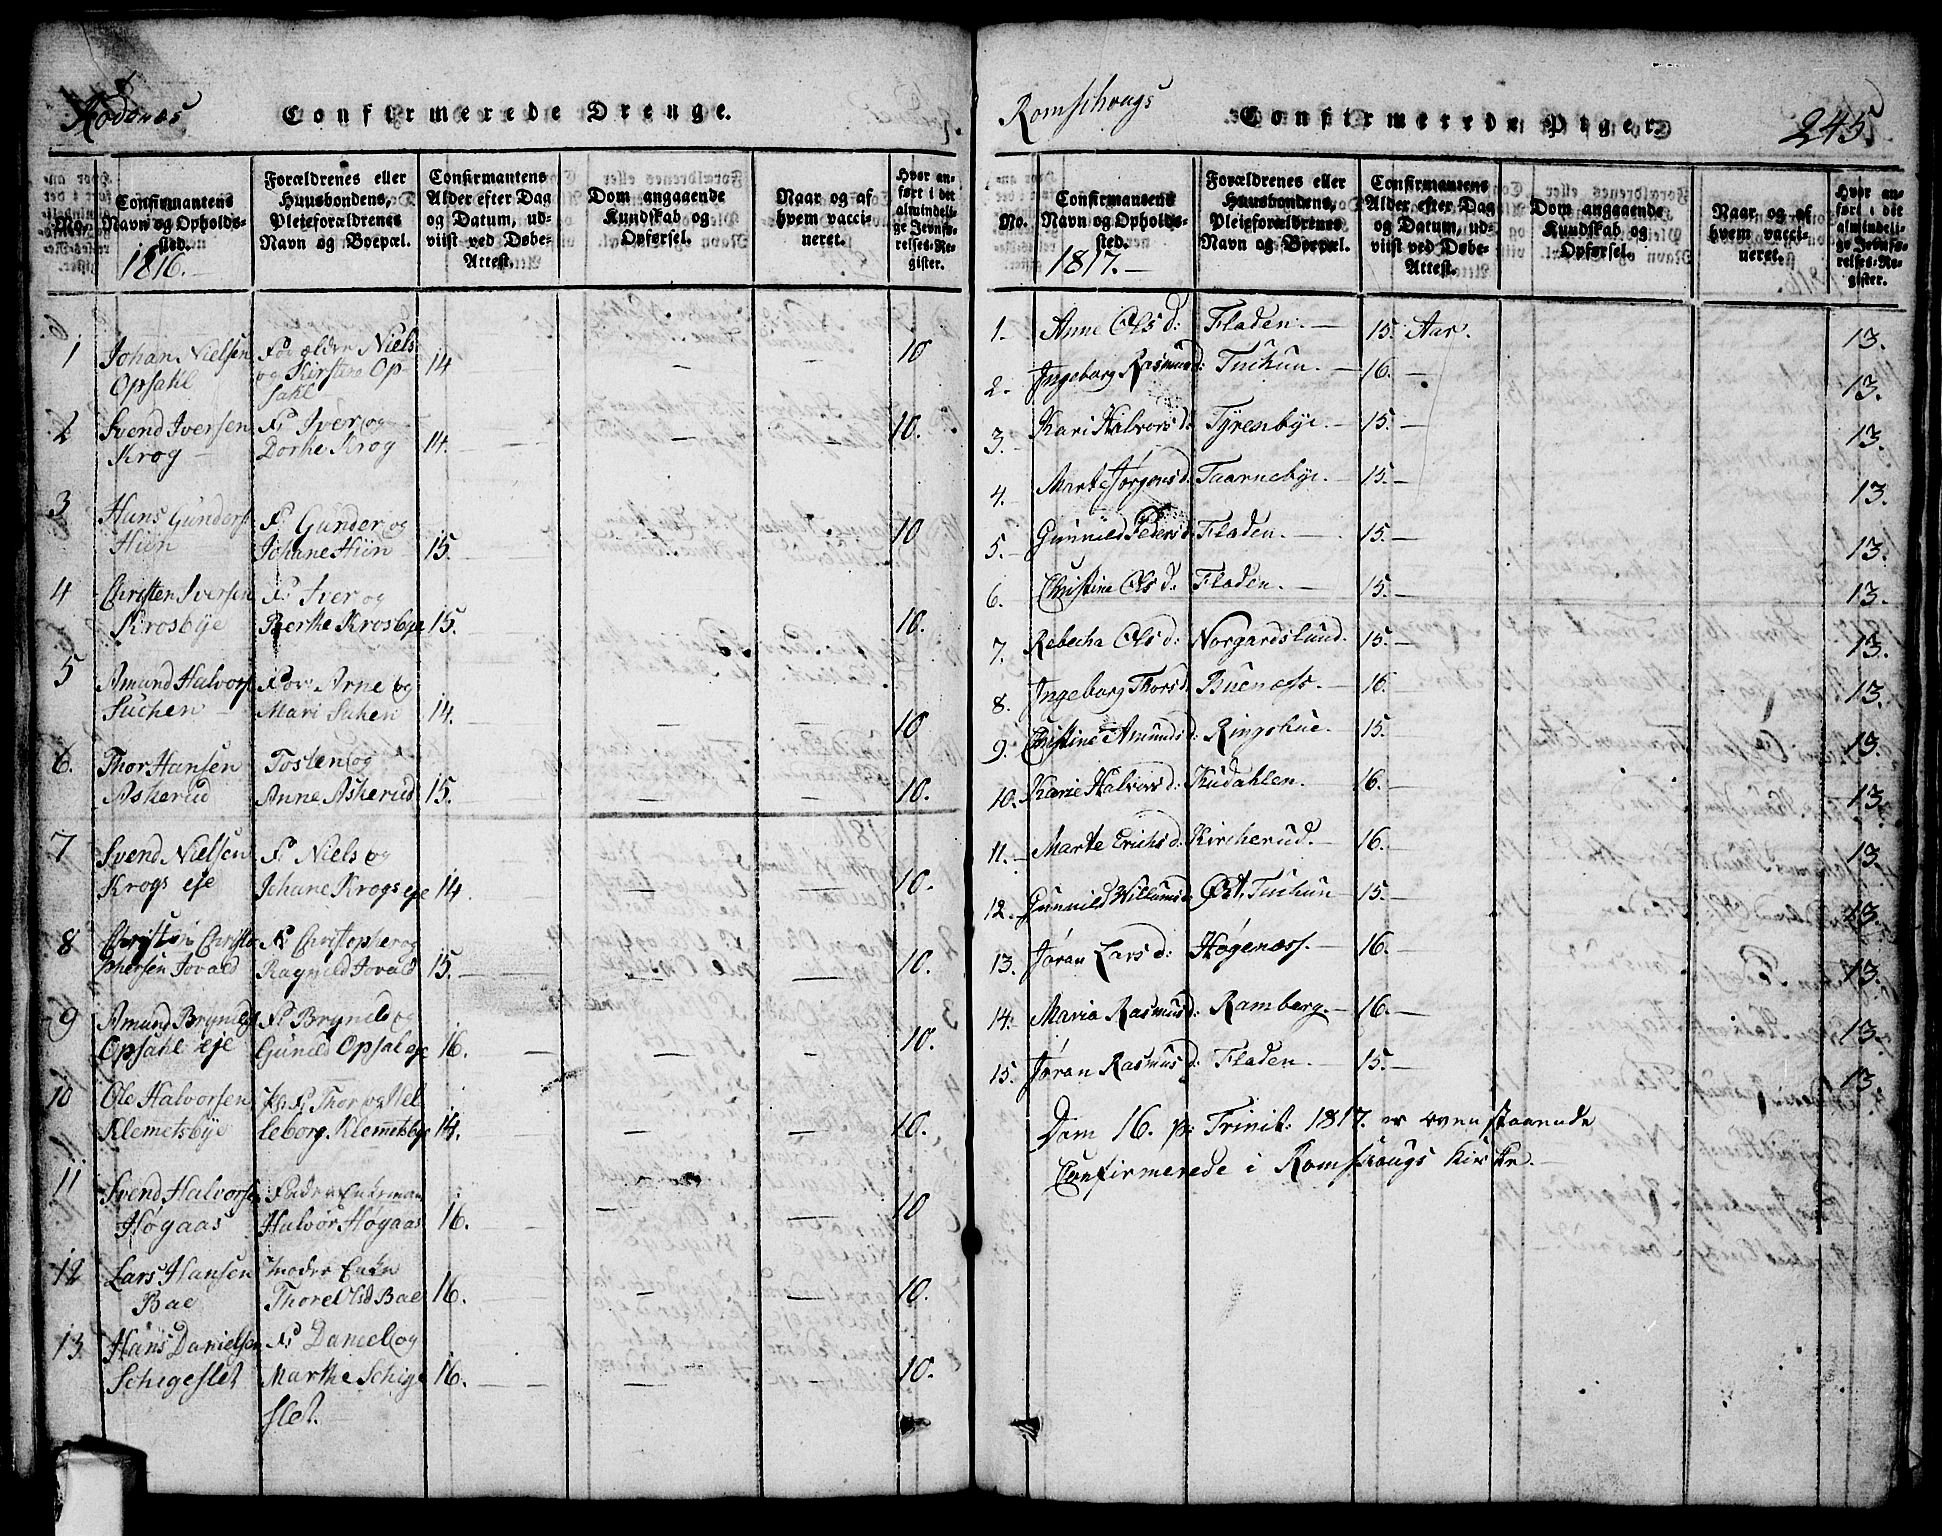 Rødenes
Confirmerede Drenge.
No.
Confirmantens Navn og Opholdssted.
Forældrenes eller Huusbondens, Pleieforældrenes Navn og Boepæl.
Confirmantens Alder efter Dag og Datum, udviist ved Døbe-Attest.
Dom angaaende Kundskab og Opførsel.
Naar og af hvem vaccineret.
Hvor anført i det almindelige Jevnførelses-Register.
1816.
1 Johan Nielsen Forældre Niels 14 10
Opsahl og Kirstine Opsahl
2 Svend Iversen F: Iver og
Krog Dorthe Krog 14. 10.
3 Hans Gunders F: Gunder og
Hiin Johane Hiin 15. 10
4 Christen Iversen F: Iver og
Krosbÿe Berthe Krosbye 15. 10.
5 Amund Halvors For: Arne og
Suchen Mari Suhen 14. 10
6. Thor Hansen Tosten og
Askerud Anne Askerud 15. 10.
7 Svend Nielsen F: Niels og
Krogs eje Johane Krogs eje 14. 10.
8 Christen Christo F: Christopher og
phersen Jovald Ragnild Jovald 15. 10.
9 Amund Bryndels F: Bryndel og
Opsahl eje Gunild Opsal eje 16. 10.
10 Ole Halvorsen F: Thor og Hel
Klemetsbÿe leborg Klemetsbye 14. 10.
11 Svend Halvorsen Fader Enkeman
Høgaas Halvor Høgaas 16. 10
12 Lars Hansen Moder Enke
Bae Thore Olsd Bae 16. 10.
13 Hans Danielsen F: Daniel og
Schigeslet Marthe Schige 16. 10.
slet.
Romschougs
Confirmerede Piger.
245.
No.
Confirmantens Navn og Opholdssted.
Forældrenes eller Huusbondens, Pleieforældrenes Navn og Boepæl.
Confirmantens Alder efter Dag og Datum, udviist ved Døbe-Attest.
Dom angaaende Kundskab og Opførsel.
Naar og af hvem vaccineret.
Hvor anført i det almindelige Jevnførelses-Register.
1817.
1. Anne Olsd: Fladen. 15. Aar. 13.
2. Ingeborg Rasmusd: Tukun. 16. 13.
3. Kari Halvorsd: Tyrenbye. 15. 13.
4. Marte Jørgensd: Taarnebye. 15. 13.
5. Gunnild Pedersd: Fladen. 15. 13.
6. Christine Olsd: Fladen. 15. 13.
7. Rebecha Olsd: Norgardslund. 15. 13.
8. Ingeborg Thorsd: Buenæss. 16. 13.
9. Christine Amundsd: Ringsbue. 15. 13.
10. Karie Halvorsd: Kudahlen. 16. 13.
11. Marte Erichsd: Kircherud. 16. 13.
12. Gunnild Willumsd: Øst. Tukun 15. 13.
13. Jøran Larsd: Høgenæss. 16. 13.
14. Maria Rasmusd: Ramberg. 16. 13.
15. Jøran Rasmusd: Fladen. 15. 13.
Dom 16. p: Trinit: 1817. er ovenstaaende
Confirmerede i Romschougs Kirke.